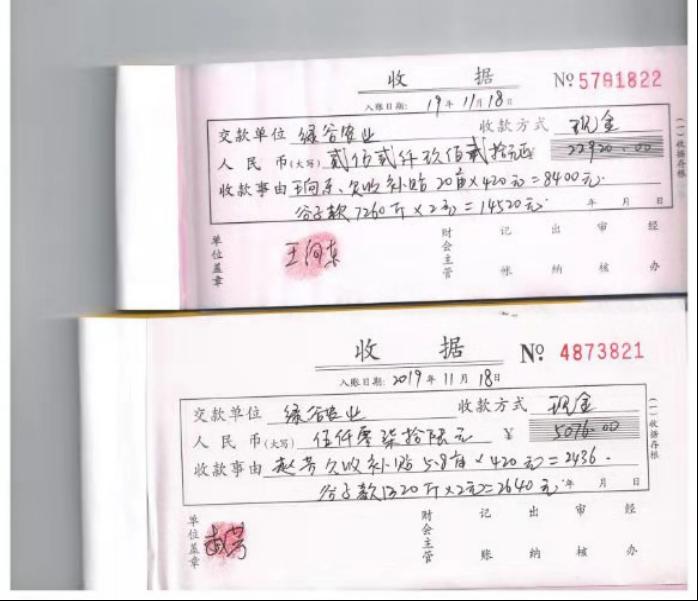 收 据 № 5781822
入账日期: 19年 11月 18日
交款单位 绿谷农业 收款方式 现金
人民币(大写) 贰佰贰仟玖佰贰拾元 ¥ 22920.00
收款事由 王向东、欠收补贴 20亩×420元=8400元.
谷子款 7260斤×2元=14520元. 年 月 日
(一)收据存根
单位盖章 王向东 财会主管 记账 出纳 审核 经办
收 据 № 4873821
入账日期: 2019年 11月 18日
交款单位 绿谷农业 收款方式 现金
人民币(大写) 伍仟零柒拾陆元 ¥ 5076.00
收款事由 赵芳欠收补贴 5.8亩×420元=2436.
谷子款 1320斤×2元=2640元. 年 月 日
(一)收据存根
单位盖章 财会主管 记账 出纳 审核 经办